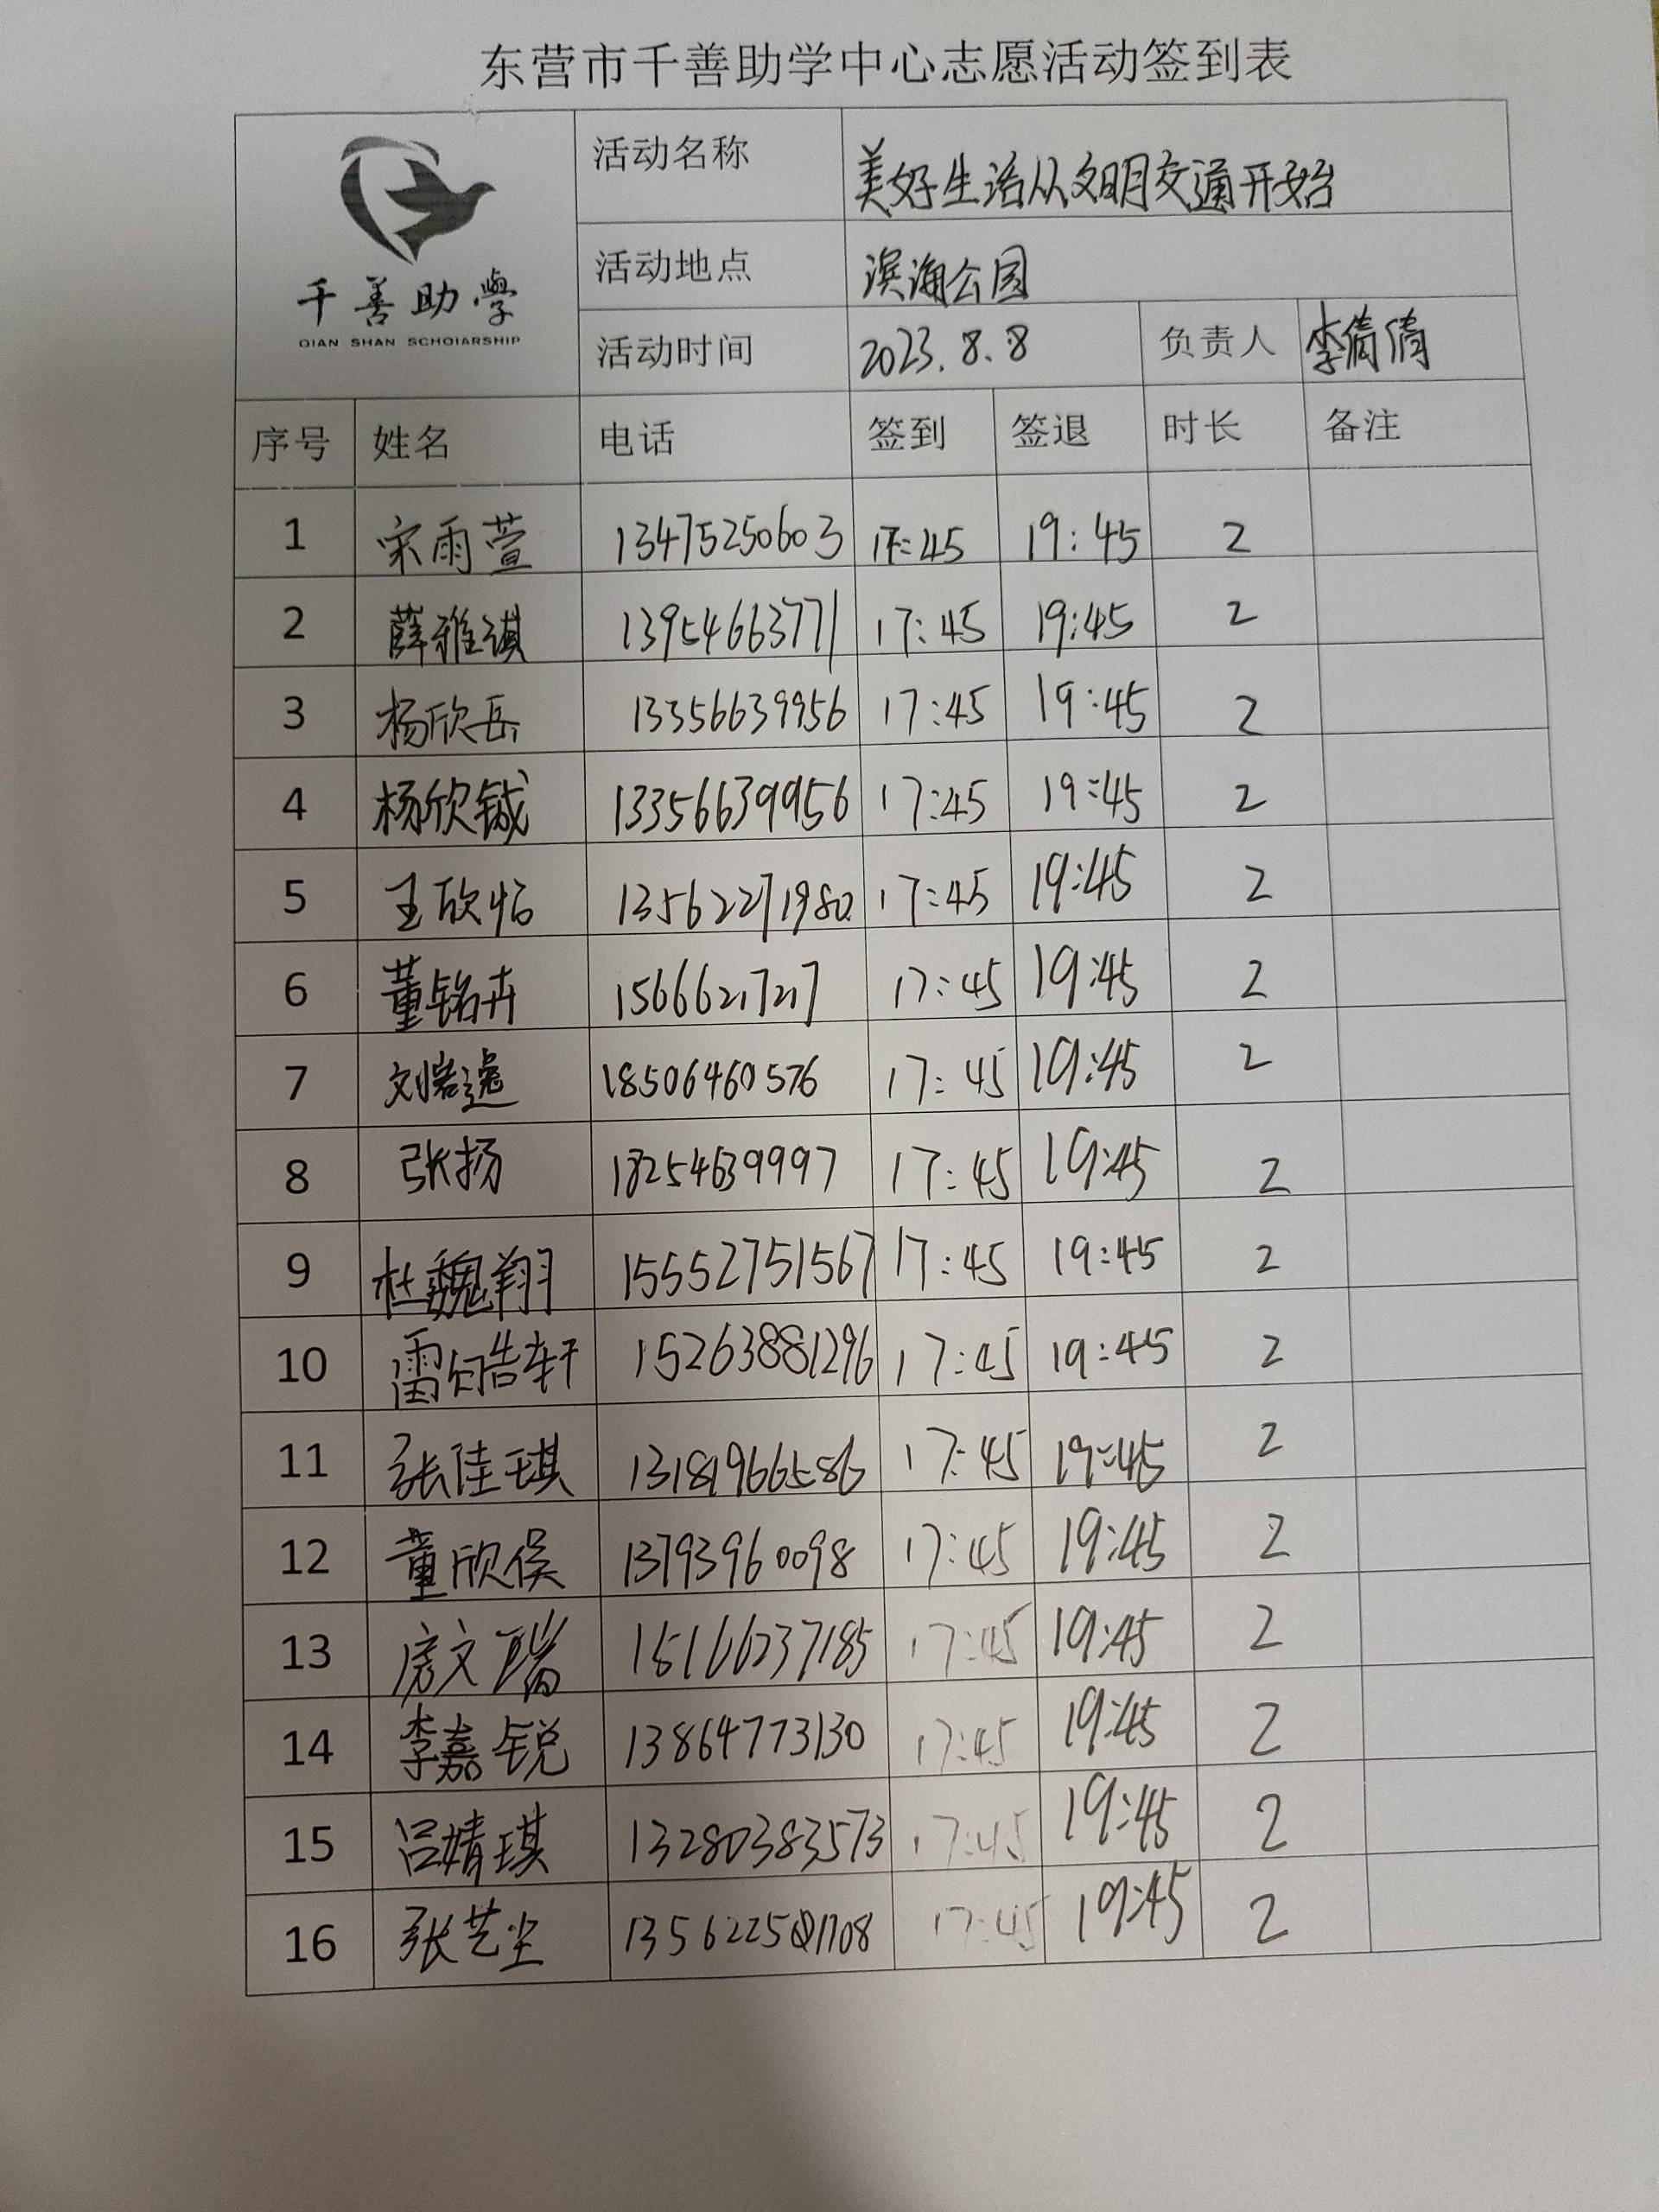 东营市千善助学中心志愿活动签到表
千善助學
QIAN SHAN SCHOlARSHIP
活动名称 美好生活从文明交通开始
活动地点 滨海公园
活动时间 2023.8.8 负责人 李倩倩
序号 姓名 电话 签到 签退 时长 备注
1 宋雨萱 13475250603 17:45 19:45 2
2 薛雅琪 13954663771 17:45 19:45 2
3 杨欣岳 13356639956 17:45 19:45 2
4 杨欣铖 13356639956 17:45 19:45 2
5 王欣怡 13562271980 17:45 19:45 2
6 董铭卉 15666217217 17:45 19:45 2
7 18506460576 17:45 19:45 2
8 张扬 18254639997 17:45 19:45 2
9 杜魏翔 15552751567 17:45 19:45 2
10 雷皓轩 15263881296 17:45 19:45 2
11 张佳琪 13181966586 17:45 19:45 2
12 董欣俣 13793960098 17:45 19:45 2
13 房文瑞 15166237185 17:45 19:45 2
14 李嘉锐 13864773130 17:45 19:45 2
15 吕婧琪 13280383573 17:45 19:45 2
16 张艺尘 17:45 19:45 2